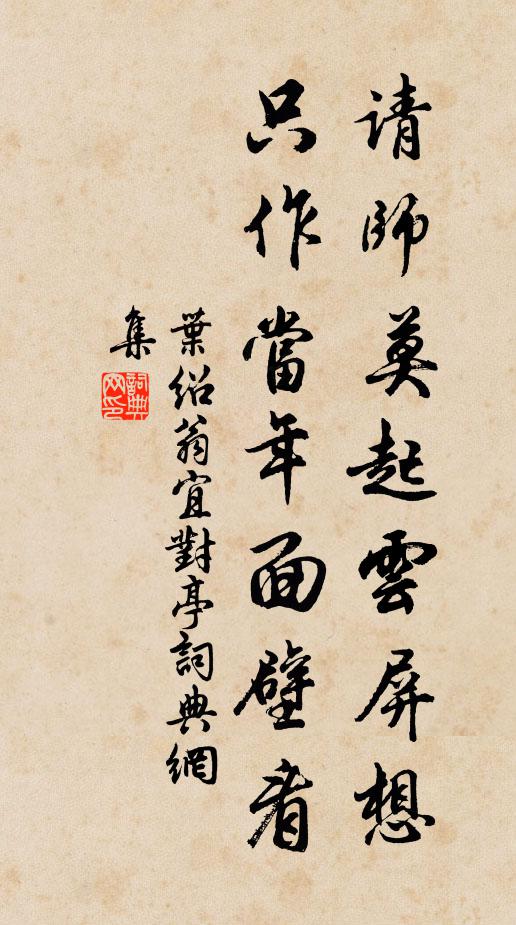 请師莫起雲屏想
只作當年面壁看
葉紹翁宜對亭詞典網
集
詞典網印